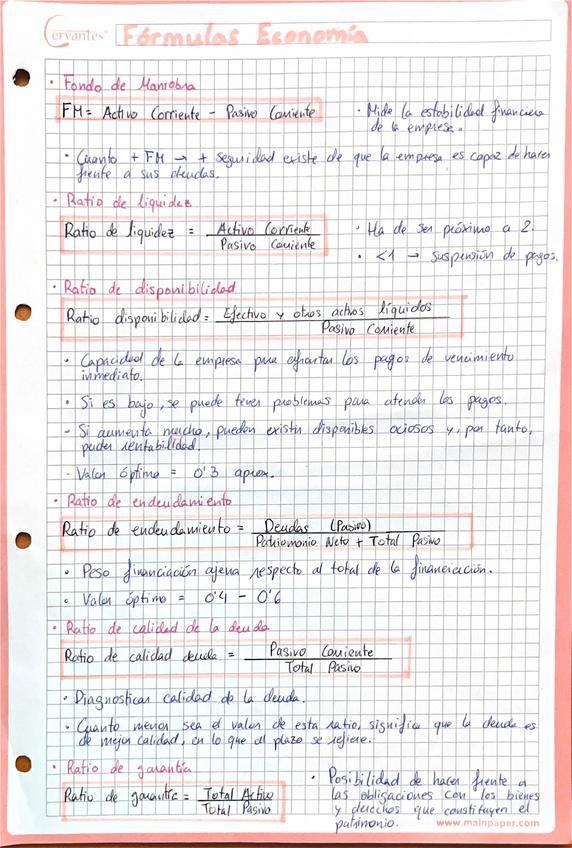 Cervantes®
Fórmulas Economía
· Fondo de Maniobra
FM = Activo Corriente - Pasivo Corriente
· Mide la estabilidad financiera
de la empresa.
· Cuanto + FM → + seguridad existe de que la empresa es capaz de hacer
frente a sus deudas.
· Ratio de liquidez
Ratio de liquidez = Activo Corriente
Pasivo Corriente
· Ha de ser próximo a 2.
· <1 → suspensión de pagos.
· Ratio de disponibilidad
Ratio disponibilidad = Efectivo y otros activos líquidos
Pasivo Corriente
· Capacidad de la empresa para afrontar los pagos de vencimiento
inmediato.
· Si es bajo, se puede tener problemas para atender los pagos.
· Si aumenta mucho, pueden existir disponibles ociosos y, por tanto,
perder rentabilidad.
· Valor óptimo = 0'3 aprox.
· Ratio de endeudamiento
Ratio de endeudamiento = Deudas (Pasivo)
Patrimonio Neto + Total Pasivo
· Peso financiación ajena respecto al total de la financiación.
· Valor óptimo = 0'4 - 0'6
· Ratio de calidad de la deuda
Ratio de calidad deuda = Pasivo Corriente
Total Pasivo
· Diagnosticar calidad de la deuda.
· Cuanto menor sea el valor de esta ratio, significa que la deuda es
de mejor calidad, en lo que al plazo se refiere.
· Ratio de garantía
Ratio de garantía = Total Activo
Total Pasivo
· Posibilidad de hacer frente a
las obligaciones con los bienes
y derechos que constituyen el
patrimonio.
www.mainpaper.com